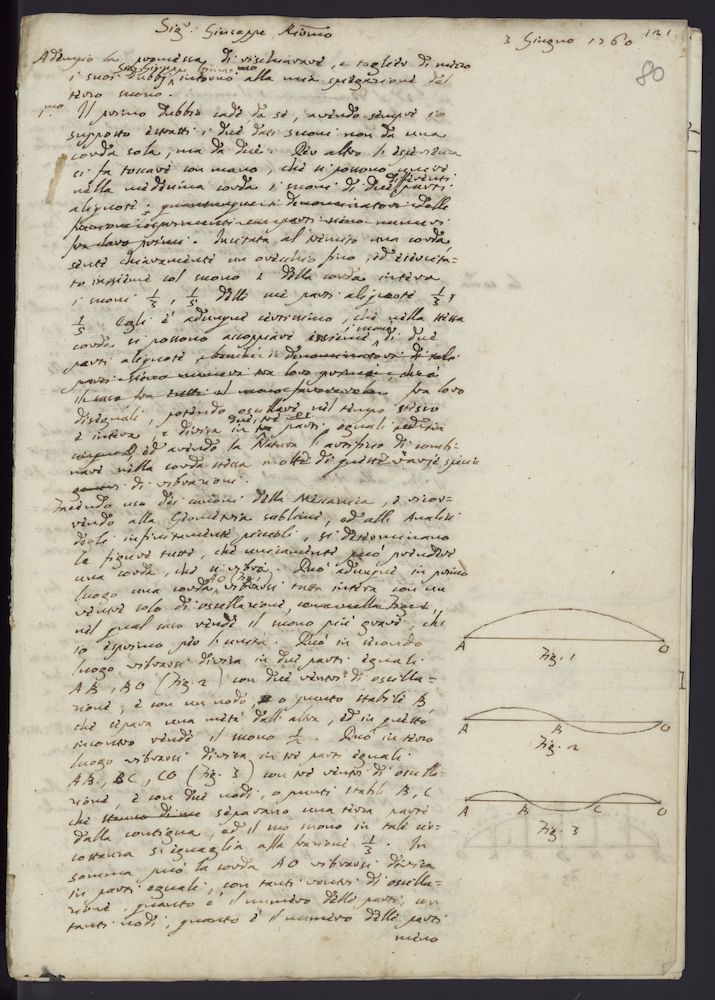 Sig.r Giuseppe
3 Giugno 1760
121
80
Adempio la promessa di rischiarare, e togliere di mezzo
i suoi dubbj intorno alla mia spiegazione del
terzo suono.
p.mo Il primo dubbio cade da se, avendo sempre io
supposto estratti i due dati suoni non da una
corda sola, ma da due. Per altro l'esperienza
ci fa toccare con mano, che si possono unire
nella medesima corda i suoni di due differenti parti
aliquote: quantunque i denominatori delle
frazioni esprimenti parti sieno numeri
fra loro primi. Incitata al tremito una corda,
sente chiaramente un orecchio fino, ed esercita-
to insieme col suono 1 della corda intera
i suoni 1/3, 1/5 delle sue parti aliquote 1/3,
1/5. Egli è adunque certissimo, che nella stessa
corda si possono accoppiare insieme i suoni di due
parti aliquote, benchè i denominatori di tali
parti sieno numeri tra loro primi,
il caso fra tutti il meno favorevole fra loro
diseguali, potendo oscillare nel tempo stesso
e intera, e divisa in due, tre parti eguali
ed avendo la Natura l'artifizio di combi-
nare nella corda stessa molte di queste varie specie
di vibrazioni.
Facendo uso dei canoni della Meccanica, e ricor-
rendo alla Geometria sublime, ed all' Analisi
degli infinitamente piccoli, si determinano
le figure tutte, che unicamente può prendere
una corda, che si vibra. Può adunque in primo
luogo una corda AO (Fig. 1) vibrarsi tutta intera con un
ventre solo di oscillazione, come nella Fig. 1,
nel qual caso rende il suono più grave, che
io esprimo per l'unità. Può in secondo
luogo vibrarsi divisa in due parti eguali
AB, BO (Fig. 2) con due ventri di oscilla-
zione, e con un nodo, o punto stabile B,
che separa una metà dall' altra, ed in questo
incontro rende il suono 1/2. Può in terzo
luogo vibrarsi divisa in tre parti eguali
AB, BC, CO (Fig. 3) con tre ventri di oscilla-
zione, e con due nodi, o punti stabili B, C
che separano una terza parte
dalla contigua, ed il suo suono in tale cir-
costanza si eguaglia alla frazione 1/3. In
somma può la corda AO vibrarsi divisa
in parti eguali, con tanti ventri di oscilla-
zione, quanto è il numero delle parti, con
tanti nodi, quanto è il numero delle parti
meno
A O
Fig. 1
A B O
Fig. 2
A B C O
Fig. 3